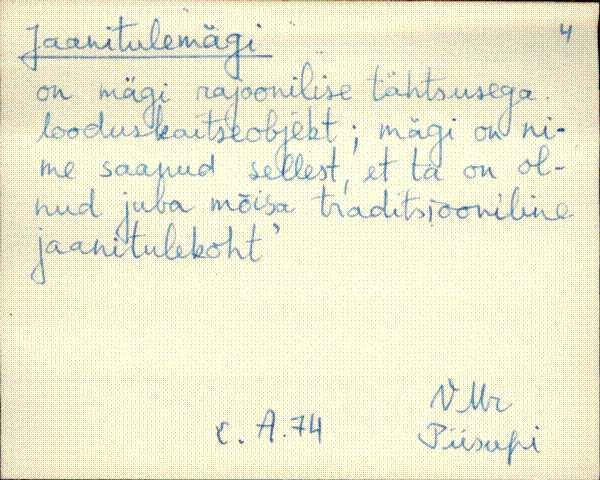 4
Jaanitulemägi
on mägi rajoonilise tähtsusega
looduskaitseobjekt; mägi on ni-
me saanud sellest, et ta on ol-
nud juba mõisa traditsiooniline
jaanitulekoht’
V Mr
E. A. 74
Piisupi